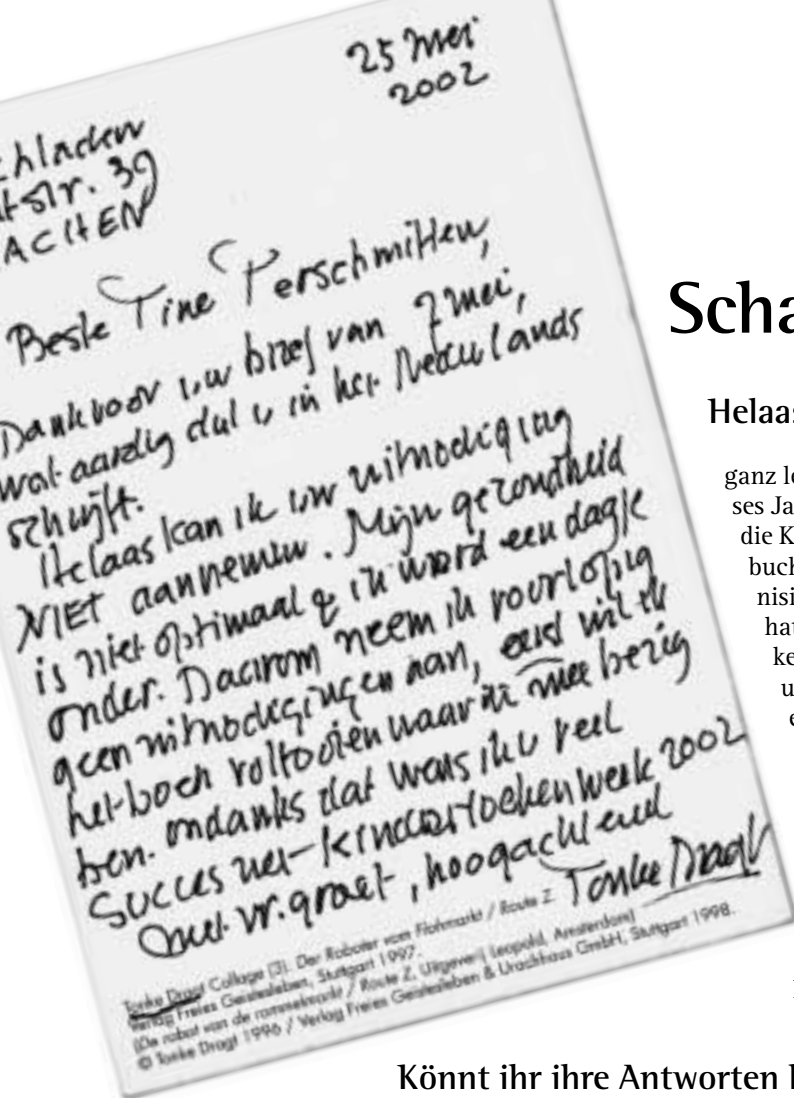 25 Mei
2002
chladen
tstr. 39
ACHEN
Beste Tine Perschmitten,
Dank voor uw brief van 7 mei,
wat aardig dat u in het Nederlands
schrijft.
Helaas kan ik uw uitnodiging
NIET aannemen. Mijn gezondheid
is niet optimaal & ik word een dagje
ouder. Daarom neem ik voorlopig
geen uitnodigingen aan, eerst wil ik
het boek voltooien waar ik mee bezig
ben. Ondanks dat wens ik u veel
succes met kinderboekenweek 2002
met vr. groet, hoogachtend
Tonke Dragt
Tonke Dragt Collage (3). Der Roboter vom Flohmarkt / Route Z.
Verlag Freies Geistesleben, Stuttgart 1997.
(De robot van de rommelmarkt / Route Z, Uitgeverij Leopold, Amsterdam)
© Tonke Dragt 1996 / Verlag Freies Geistesleben & Urachhaus GmbH, Stuttgart 1998.
Scha
Helaas
ganz le
ses Ja
die K
buch
nisi
hat
ke
u
e
Könnt ihr ihre Antworten l